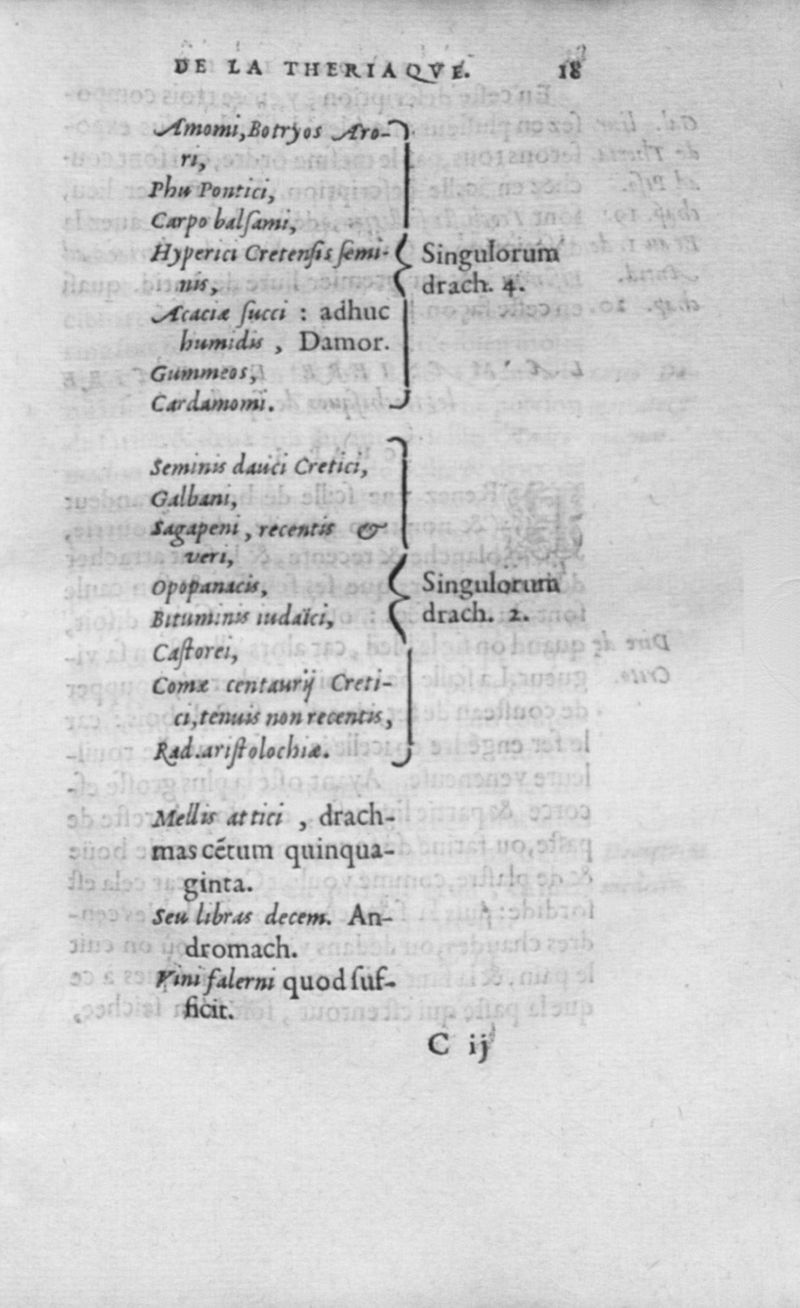 DE LA THERIAQVE. 18
Amomi, Botryos Aro-
ri,
Phu Pontici,
Carpo balſami,
Hyperici Cretenſis ſemi-
nis,
Acaciæ ſucci : adhuc
humidis , Damor.
Gummeos,
Cardamomi.
Singulorum
drach. 4.
Seminis dauci Cretici,
Galbani,
Sagapeni , recentis &
veri,
Opopanacis,
Bituminis iudaïci,
Caſtorei,
Comæ centaurij Creti-
ci, tenuis non recentis,
Rad. ariſtolochiæ.
Singulorum
drach. 2.
Mellis attici , drach-
mas cẽtum quinqua-
ginta.
Seu libras decem. An-
dromach.
Vini falerni quod ſuf-
ficit.
C ij